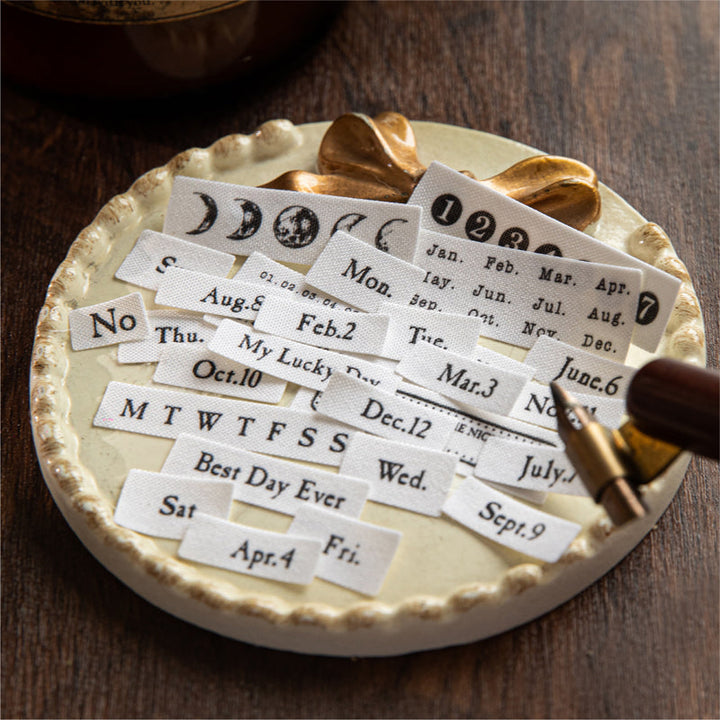 you.
1 2 3 7
Jan. Feb. Mar. Apr.
Jun. Jul. Aug.
Oct. Nov. Dec.
Mon.
01.02.03.04
Aug.8
Feb.2
No
Thu.
Tue.
My Lucky Day
June.6
Oct.10
Mar.3
Dec.12
M T W T F S S
Best Day Ever
Wed.
July.7
Sat
Sept.9
Apr.4
Fri.